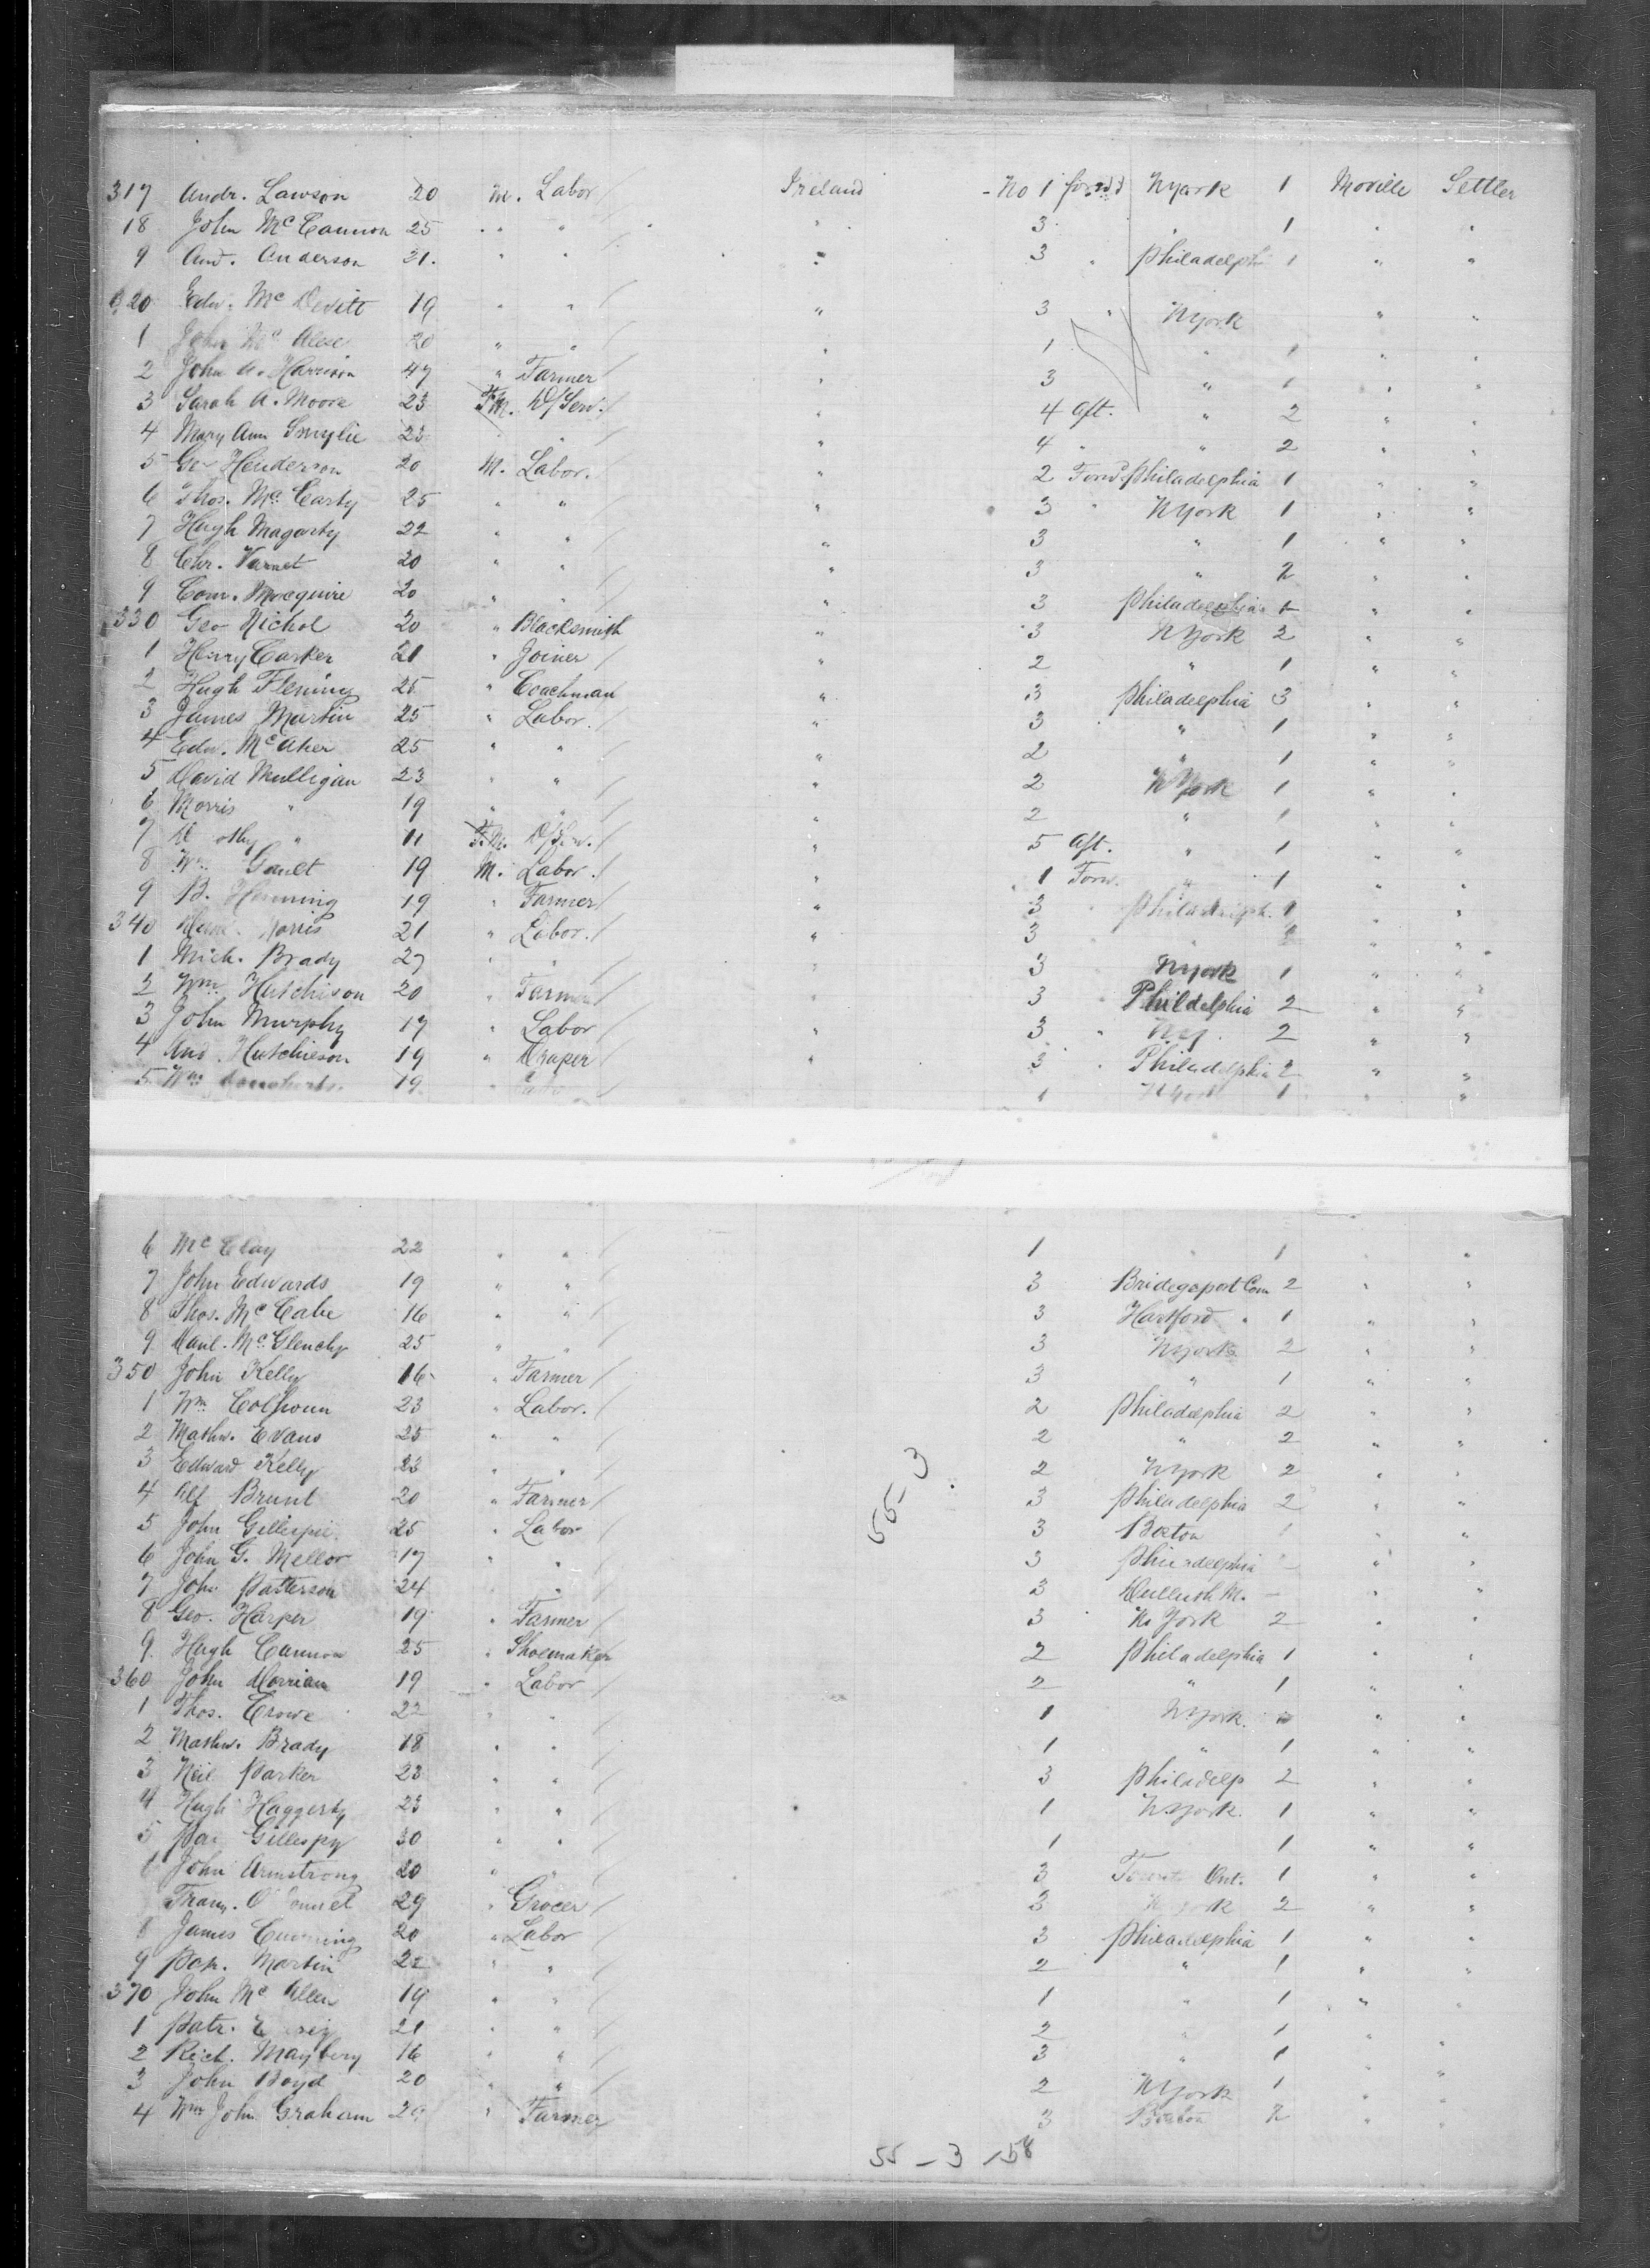 317 Andr. Lawson 20 M. Labor / Ireland No 1 forwd Nyork 1 Moville Settler
18 John McCannon 25 " " " 3 " 1 " "
9 And. Anderson 21. " " / " 3 " Philadelph 1 " "
320 Edw. McDevitt 19 " " / " 3 " NYork " "
1 John Mc 20 " " / " 1 " 1 " "
2 John A. Harrison 47 " Farmer / " 3 " 1 " "
3 Sarah A. Moore 23 F M. D/Serv. / " 4 Aft. " 2 " "
4 Mary Ann Smylie 23 " " " 4 " " 2 " "
5 Geo Henderson 20 M. Labor. / " 2 Forwd Philadelphia 1 " "
6 Thos. McCarty 25 " " / " 3 " NYork 1 " "
7 Hugh Magarty 22 " " / " 3 " 1 " "
8 Chr. Varnet 20 " " / " 3 " 2 " "
9 Con. Macquire 20 " " / " 3 Philadelphia 1 " "
330 Geo Nichol 20 " Blacksmith " 3 NYork 2 " "
1 Henry Carker 21 " Joiner / " 2 " 1 " "
2 Hugh Fleming 25 " Coachman / " 3 Philadelphia 3 " "
3 James Martin 25 " Labor. / " 3 " 1 " "
4 Edw. McAher 25 " " / " 2 " 1 " "
5 David Mulligan 23 " " / " 2 NYork 1 " "
6 Morris " 19 " " / " 2 " 1 " "
7 " 11 F.M. D/Serv. / " 5 Aft. " 1 " "
8 Wm Gault 19 M. Labor. / " 1 Forw. " 1 " "
9 B. Henning 19 " Farmer / " 3 " Philadelph. 1 " "
340 Morris 21 " Labor. / " 3 " " "
1 Mich. Brady 27 " " / " 3 " NYork 1 " "
2 Wm. Hutchison 20 " Farmer / " 3 " Phildelphia 2 " "
3 John Murphy 17 " Labor / " 3 " NY. 2 " "
4 And. Hutchieson 19 " Draper / " 3 " Philadelphia 2 " "
5 Wm 19 " Labor / 1 NYork 1 " "
6 McClay 22 " " / 1 " 1 " "
7 John Edwards 19 " " / 3 Bridegeport Con 2 " "
8 Thos. McCabe 16 " " / 3 Hartford " 1 " "
9 Danl. McGlenchy 25 " " / 3 NYork 2 " "
350 John Kelly 16 " Farmer / 3 " 1 " "
1 Wm Colhoun 23 " Labor. / 2 Philadelphia 2 " "
2 Mathw. Evans 25 " " / 2 " 2 " "
3 Edward Kelly 23 " " / 2 NYork 2 " "
4 Alf Brunt 20 " Farmer / 3 Philadelphia 2 " "
5 John Gillespie 25 " Labor 3 Boston 1 " "
55-3
6 John G. Mellor 17 " " / 3 Philadelphia " "
7 John Patterson 24 " " / 3 Dulluth M. - " "
8 Geo. Harper 19 " Farmer / 3 N. York 2 " "
9 Hugh Cannon 25 " Shoemaker 2 Philadelphia 1 " "
360 John Morrian 19 " Labor / 2 " 1 " "
1 Thos. Crowe 22 " " / 1 NYork. " "
2 Mathw. Brady 18 " " / 1 " 1 " "
3 Neil Parker 23 " " / 3 Philadelp 2 " "
4 Hugh Haggerty 23 " " / 1 NYork. 1 " "
5 Pa. Gillespy 30 " " / 1 1 " "
6 John Armstrong 20 " " / 3 Toronto Ont. 1 " "
Fran. O'Donnel 29 " Grocer / 3 N York 2 " "
8 James Cumming 20 " Labor / 3 Philadelphia 1 " "
9 Pat. Martin 22 " " / 2 " 1 " "
370 John McAllen 19 " " / 1 " 1 " "
1 Patr. 21 " " / 2 " 1 " "
2 Rich. Maybery 16 " " / 3 " 1 " "
3 John Boyd 20 " " / 2 NYork 1 " "
4 Wm John Graham 29 " Farmer 3 Boston 2 " "
55 - 3 - 58